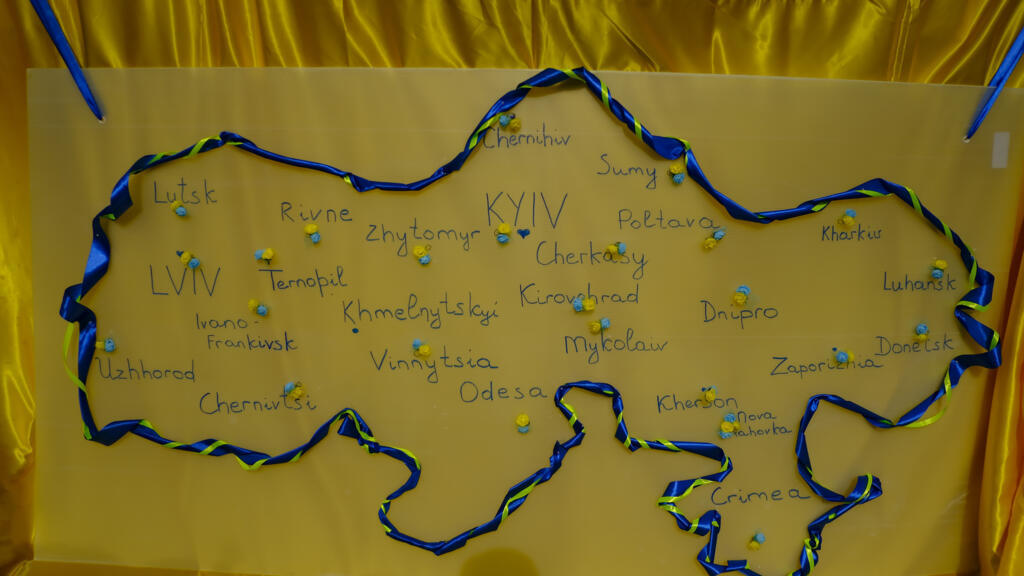 Chernihiv
Sumy
Lutsk
Rivne
KYIV
Poltava
Zhytomyr
Kharkiv
Cherkasy
LVIV
Ternopil
Luhansk
Kirovohrad
Khmelnytskyi
Dnipro
Ivano-
Frankivsk
Mykolaiv
Donetsk
Vinnytsia
Zaporizhia
Uzhhorod
Odesa
Chernivtsi
Kherson
Nova
Kahovka
Crimea